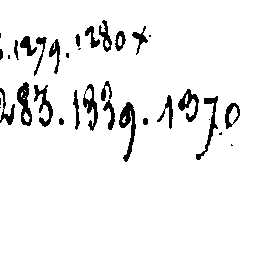 .1279.1280x
283.1339.1370